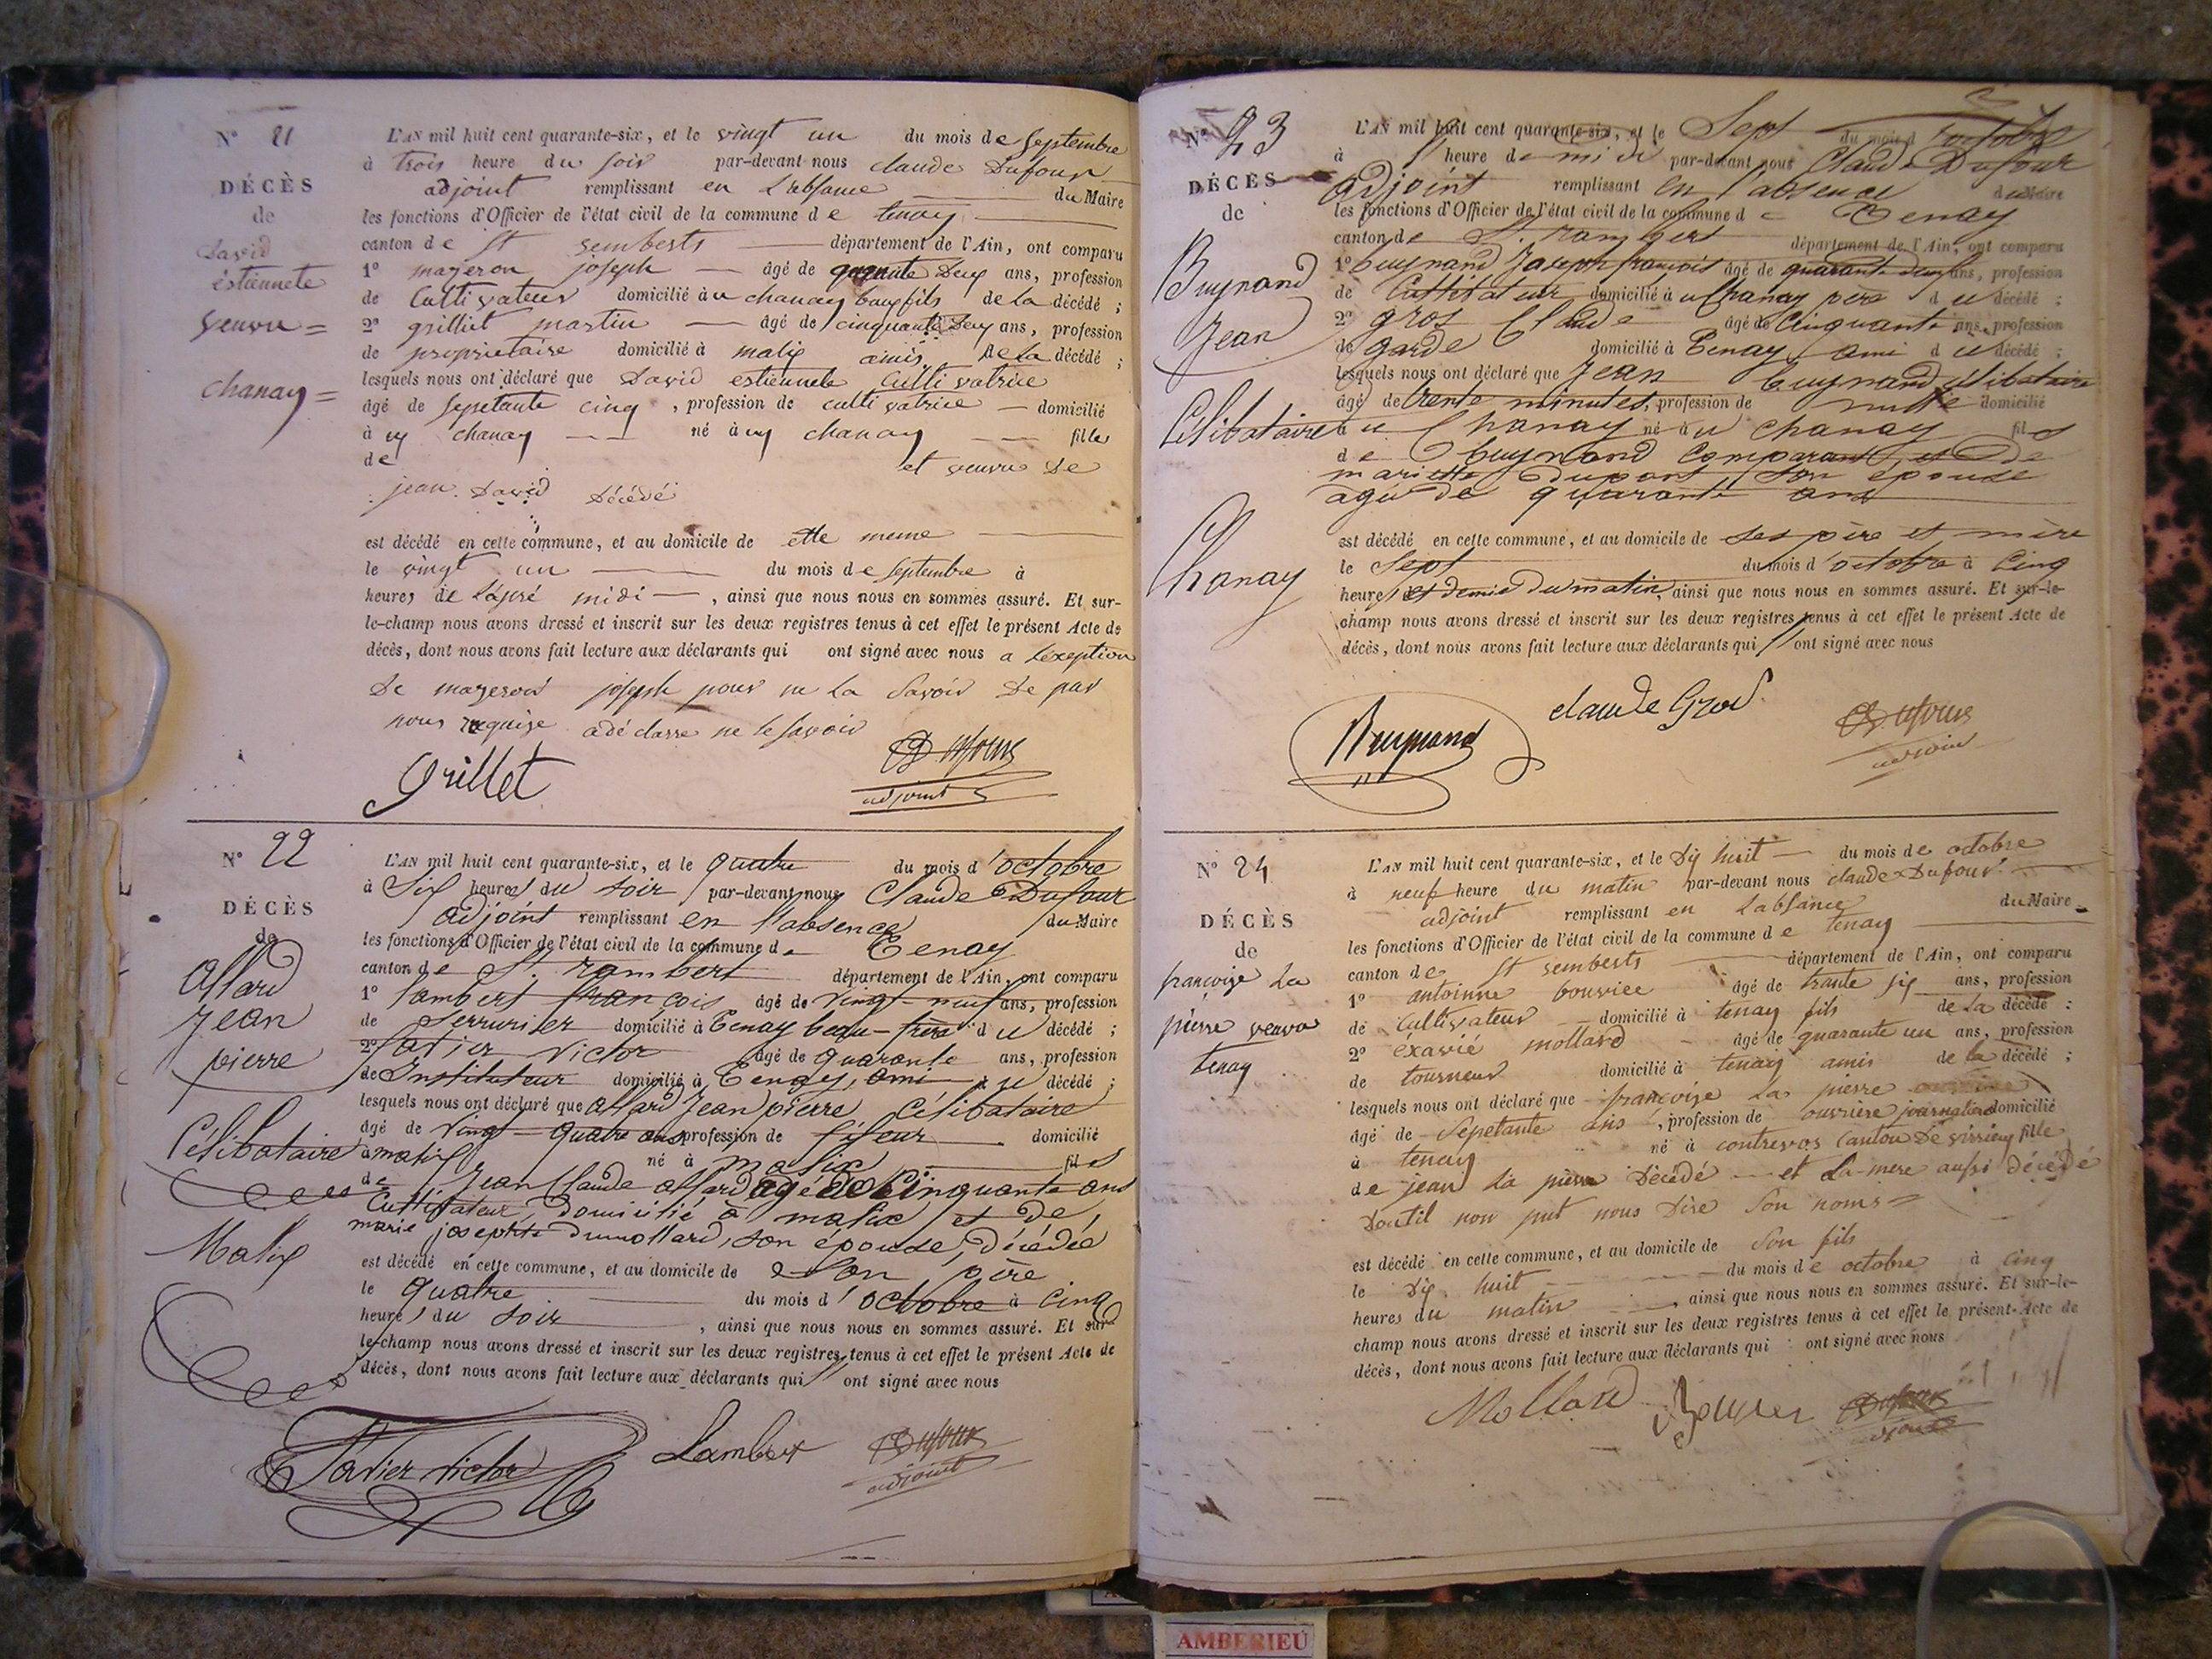 N° 21
DÉCÈS
de
David
éstiennete
veuve =
chanay =
L'AN mil huit cent quarante-six, et le vingt un du mois de Septembre
à trois heure du soir par-devant nous claude Dufour
adjoint remplissant en L'absance du Maire
les fonctions d'Officier de l'état civil de la commune de tenay
canton de st rembert département de l'Ain, ont comparu
1° mageron joseph âgé de quarante deux ans, profession
de Cultivateur domicilié à u chanay beaufils de la décédé ;
2° grilliet martin âgé de cinquante deux ans, profession
de proprietaire domicilié à malix amis, de La décédé ;
lesquels nous ont déclaré que David estiennete Cultivatrice
âgé de sepetante cinq, profession de cultivatrice domicilié
à uy chanay né à uy chanay fille
de et veuve de
jean David Décédé
est décédé en cette commune, et au domicile de elle meme
le vingt un du mois de septembre à
heures de L'apré midi, ainsi que nous nous en sommes assuré. Et sur-
le-champ nous avons dressé et inscrit sur les deux registres tenus à cet effet le présent Acte de
décès, dont nous avons fait lecture aux déclarants qui ont signé avec nous a L'exeption
De mageron joseph pour ne La Savoir De par
nous requise a dé clarre ne le savoir
Grillet Dufour
adjoint
N° 22
DÉCÈS
de
Allard
Jean
pierre
Célibataire
Malix
L'AN mil huit cent quarante-six, et le quatre du mois d'octobre
à Six heures du soir par-devant nous Claude Dufour
adjoint remplissant en l'absence du Maire
les fonctions d'Officier de l'état civil de la commune de Tenay
canton de St. rambert département de l'Ain, ont comparu
1° lambert françois âgé de vingt-neuf ans, profession
de Serrurier domicilié à Tenay beau-frère du décédé ;
2° Tavier Victor âgé de quarante ans, profession
de Instituteur domicilié à Tenay, ami du décédé ;
lesquels nous ont déclaré que allard Jean pierre Célibataire
âgé de vingt-quatre ans profession de fileur domicilié
à malix né à malix fils
de Jean Claude allard agé de Cinquante ans
Cultivateur, domicilié à malix et de
marie josephte Dumollard, son épouse, décédée
est décédé en cette commune, et au domicile de Son père
le quatre du mois d'octobre à Cinq
heures du soir, ainsi que nous nous en sommes assuré. Et sur-
le-champ nous avons dressé et inscrit sur les deux registres tenus à cet effet le présent Acte de
décès, dont nous avons fait lecture aux déclarants qui ont signé avec nous
Tavier Victor Lambert Dufour
adjoint
N° 23
DÉCÈS
de
Buynand
Jean
Célibataire
Chanay
L'AN mil huit cent quarante-six, et le Sept du mois d'octobre
à heure de midi par-devant nous Claude Dufour
adjoint remplissant en l'absence du Maire
les fonctions d'Officier de l'état civil de la commune de Tenay
canton de St. rambert département de l'Ain, ont comparu
1° buynand Joseph françois âgé de quarante deux ans, profession
de Cultivateur domicilié à u Chanay père du décédé ;
2° gros Claude âgé de Cinquante ans, profession
de garde domicilié à Tenay ami du décédé ;
lesquels nous ont déclaré que Jean buynand célibataire
âgé de trente minutes, profession de nulle domicilié
à u Chanay né à u chanay fils
de buynand Comparant, et de
mariette Dupont, son épouse
agée de quarante ans
est décédé en cette commune, et au domicile de ses père et mère
le Sept du mois d'octobre à Cinq
heures et demie du matin, ainsi que nous nous en sommes assuré. Et sur-le-
champ nous avons dressé et inscrit sur les deux registres tenus à cet effet le présent Acte de
décès, dont nous avons fait lecture aux déclarants qui ont signé avec nous
Buynand claude Gros Dufour
adjoint
N° 24
DÉCÈS
de
françoise La
pierre veuve
tenay
L'AN mil huit cent quarante-six, et le Dix huit du mois de octobre
à neuf heure du matin par-devant nous claude Dufour
adjoint remplissant en L'absance du Maire
les fonctions d'Officier de l'état civil de la commune de tenay
canton de st rembert département de l'Ain, ont comparu
1° antoinne bouvier âgé de trante six ans, profession
de Cultivateur domicilié à tenay fils de La décédé ;
2° éxavié mollard âgé de quarante un ans, profession
de tourneur domicilié à tenay amis de la décédé ;
lesquels nous ont déclaré que françoise La pierre
âgé de Sepetante ans, profession de ouvrière journalière domicilié
à tenay né à contrevos Canton De virrieux fille
de jean La pierre Décédé et La mere aussi décédé
Dontil non put nous Dire Son noms =
est décédé en cette commune, et au domicile de Son fils
le Dix huit du mois de octobre à cinq
heures du matin, ainsi que nous nous en sommes assuré. Et sur-le-
champ nous avons dressé et inscrit sur les deux registres tenus à cet effet le présent Acte de
décès, dont nous avons fait lecture aux déclarants qui ont signé avec nous
Mollard Bouvier Dufour
adjoint
AMBERIEU